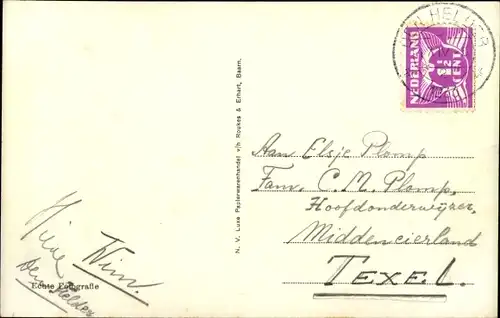 DEN HELDER
NEDERLAND
1½
CENT
Aan Elsje Plomp
Fam. C. M. Plomp,
Hoofdonderwijzer,
Middeneierland
TEXEL.
N. V. Luxe Papierwarenhandel v/h Roukes & Erhart, Baarn.
Wim.
Den Helder
Echte Fotografie